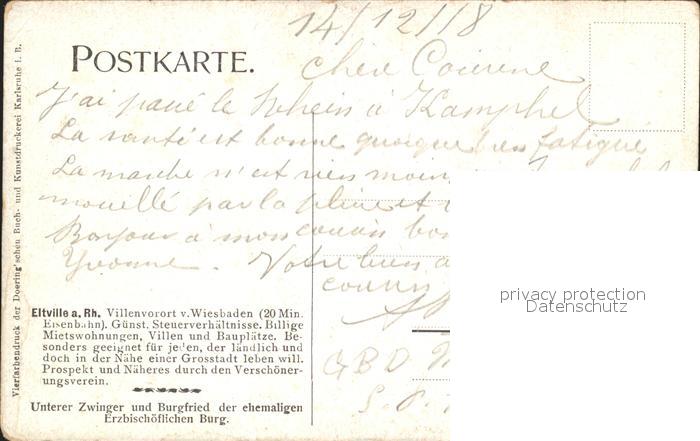 14/12/18
POSTKARTE.
chère Cousine
J'ai passé le Rhein à
La santé est bonne quoique bien fatigué
La marche n'est rien moins
mouillé par la pluie et
Bonjour à mon cousin bon
Yvonne. Votre bien a
cousin
G B D
S. P.
Eltville a. Rh. Villenvorort v. Wiesbaden (20 Min.
Eisenbahn). Günst. Steuerverhältnisse. Billige
Mietswohnungen, Villen und Bauplätze. Be-
sonders geeignet für jeden, der ländlich und
doch in der Nähe einer Grosstadt leben will.
Prospekt und Näheres durch den Verschöner-
ungsverein.
Unterer Zwinger und Burgfried der ehemaligen
Erzbischöflichen Burg.
Vierfarbendruck der Doering'schen Buch- und Kunstdruckerei Karlsruhe i. B.
privacy protection
Datenschutz